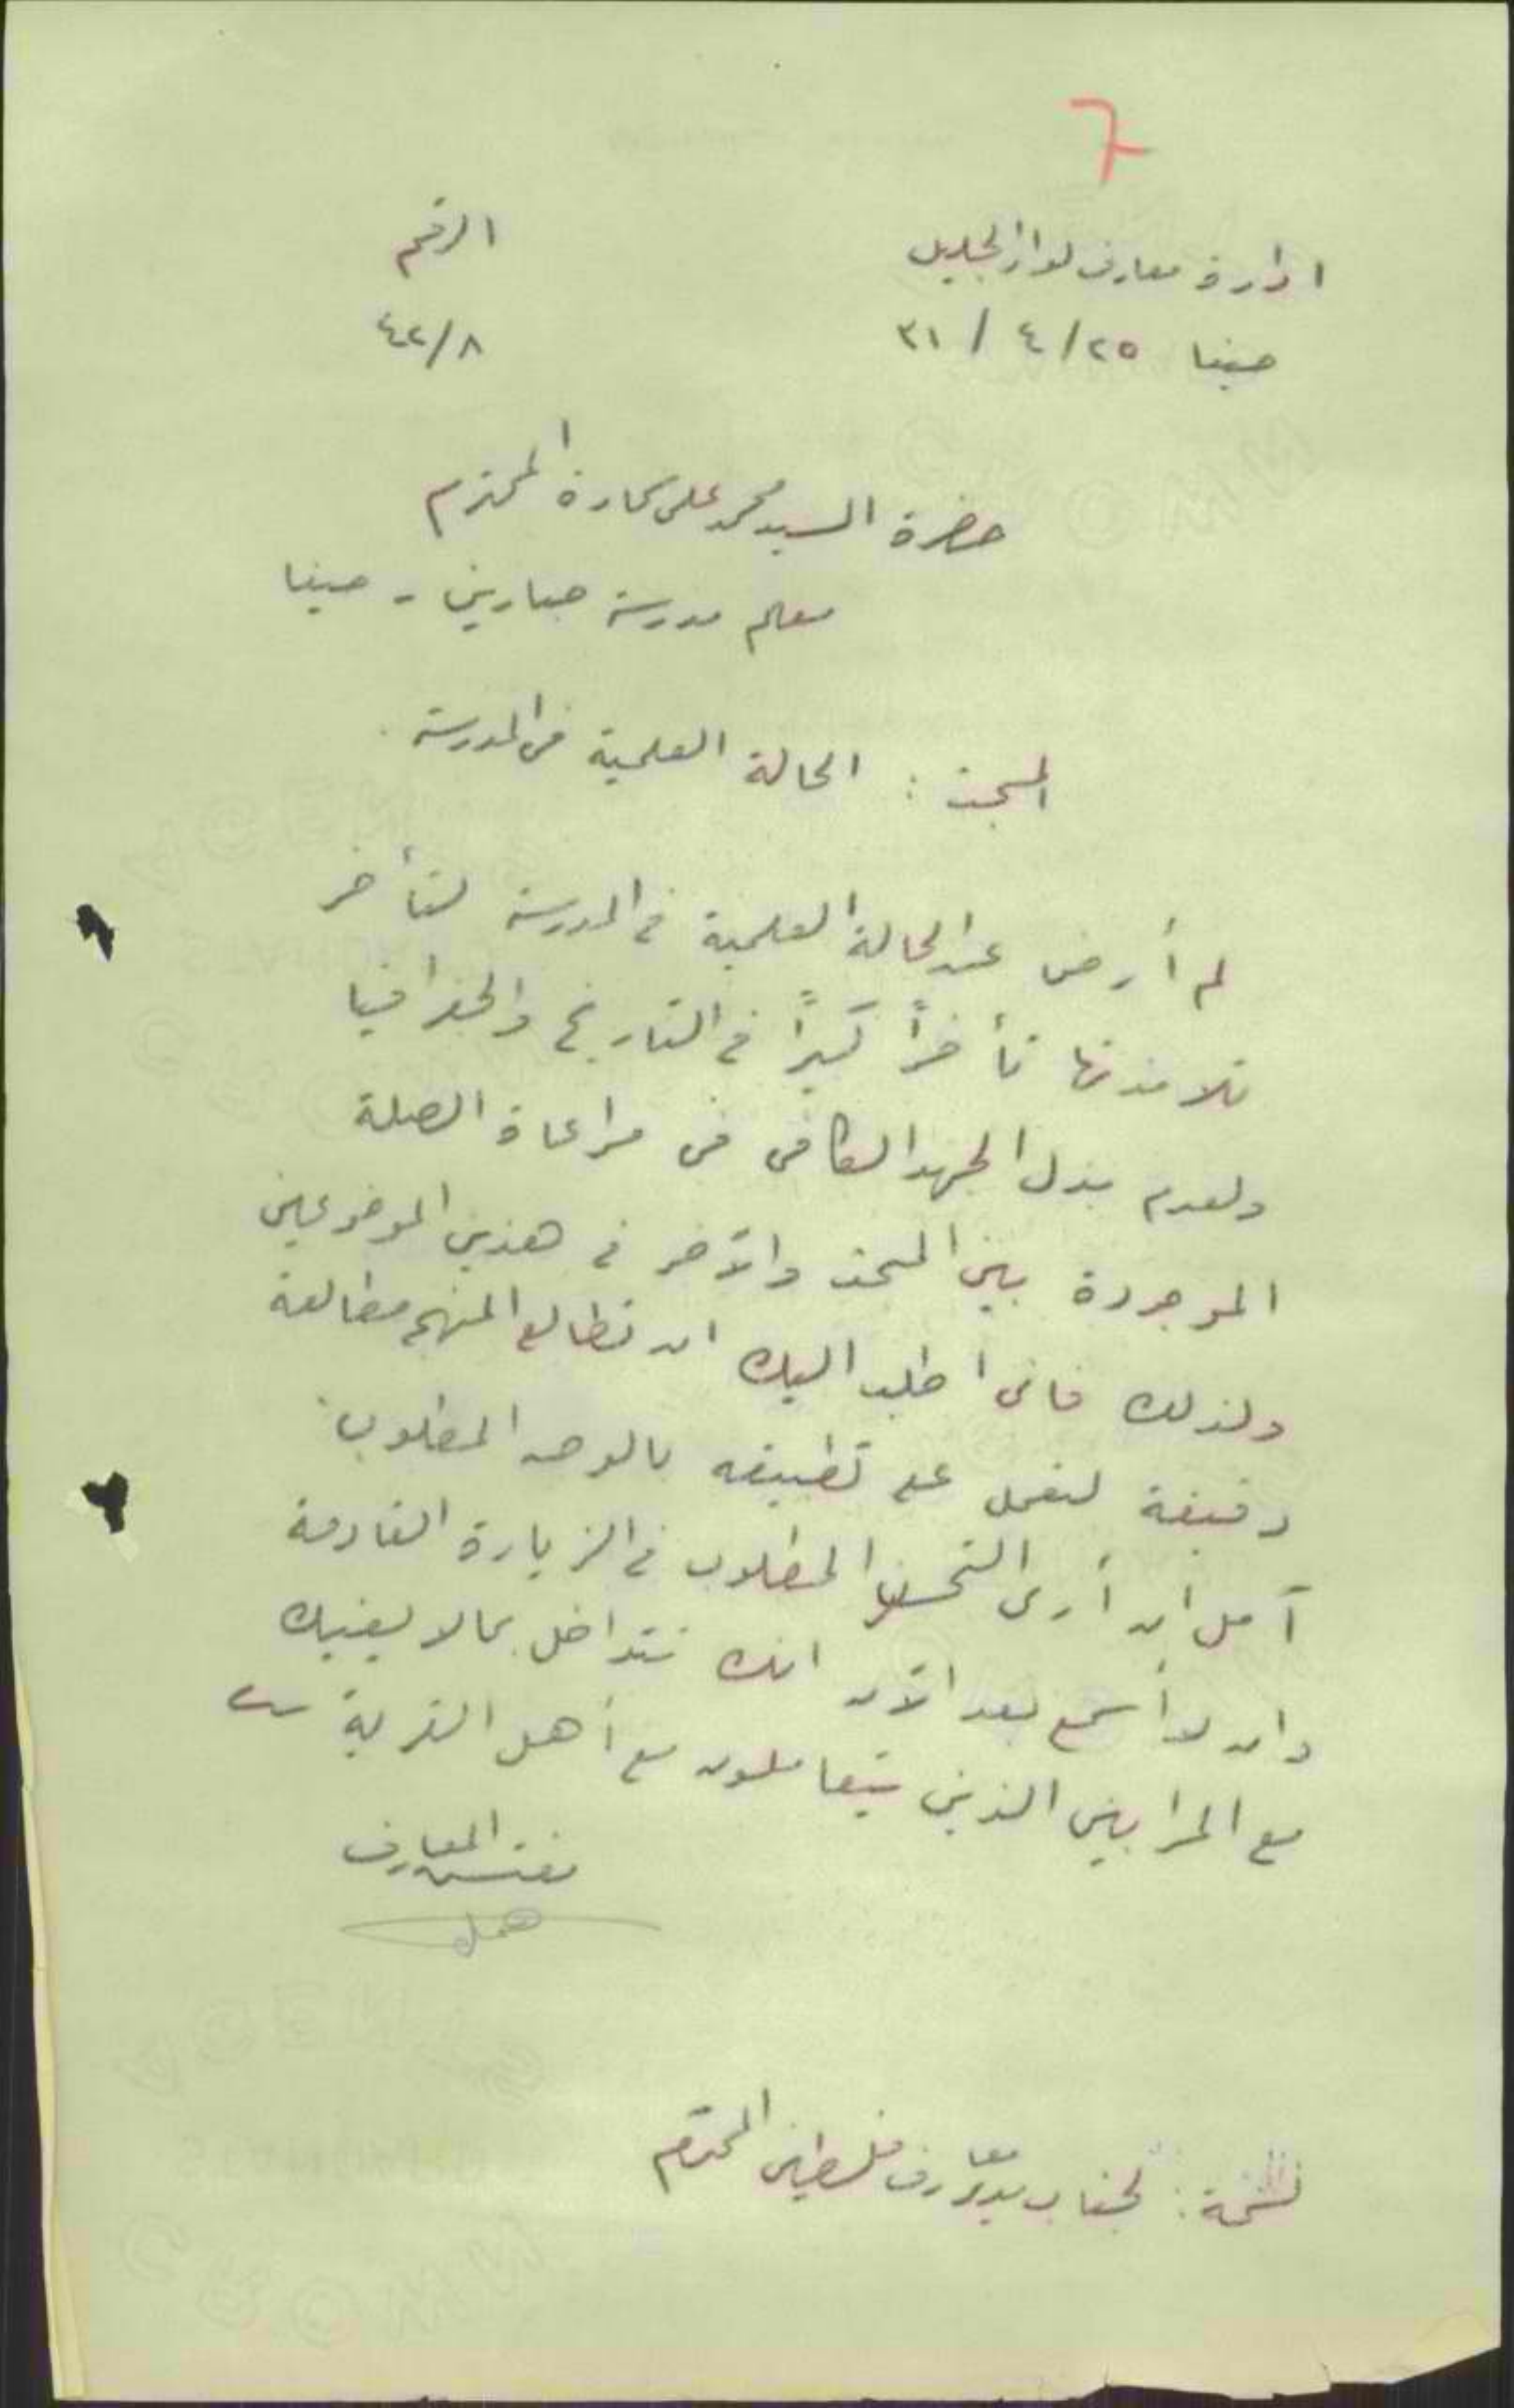 7
ادارة معارف لواء الجليل
الرقم
حيفا ٢٥/ ٤ / ٣١
٤٢/٨
حضرة السيد محمد علي المحترم
معلم مدرسة جبارين - حيفا
المبحث : الحالة العلمية في المدرسة .
لم أرض عن الحالة العلمية في المدرسة لتأخر
تلامذتها تأخراً كبيراً في التاريخ والجغرافيا
ولعدم بذل الجهد الكافي في مراعاة الصلة
الموجودة بين المبحث والآخر في هذين الموضوعين
ولذلك فاني اطلب اليك ان تطالع المنهج مطالعة
دقيقة لتعمل على تطبيقه بالوجه المطلوب .
آمل ان أرى التحسن المطلوب في الزيارة القادمة
وان لا أسمع بعد الآن انك تتداخل بما لا يعنيك
مع المرابين الذين يتعاملون مع أهل القرية
مفتش المعارف
نسخة : لجناب مدير معارف فلسطين المحترم